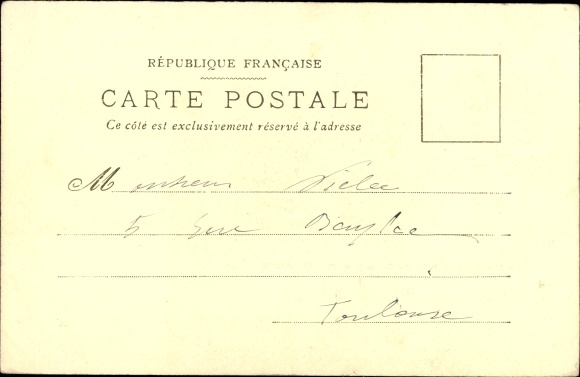 RÉPUBLIQUE FRANÇAISE
CARTE POSTALE
Ce côté est exclusivement réservé à l'adresse
Monsieur
5 rue
Toulouse